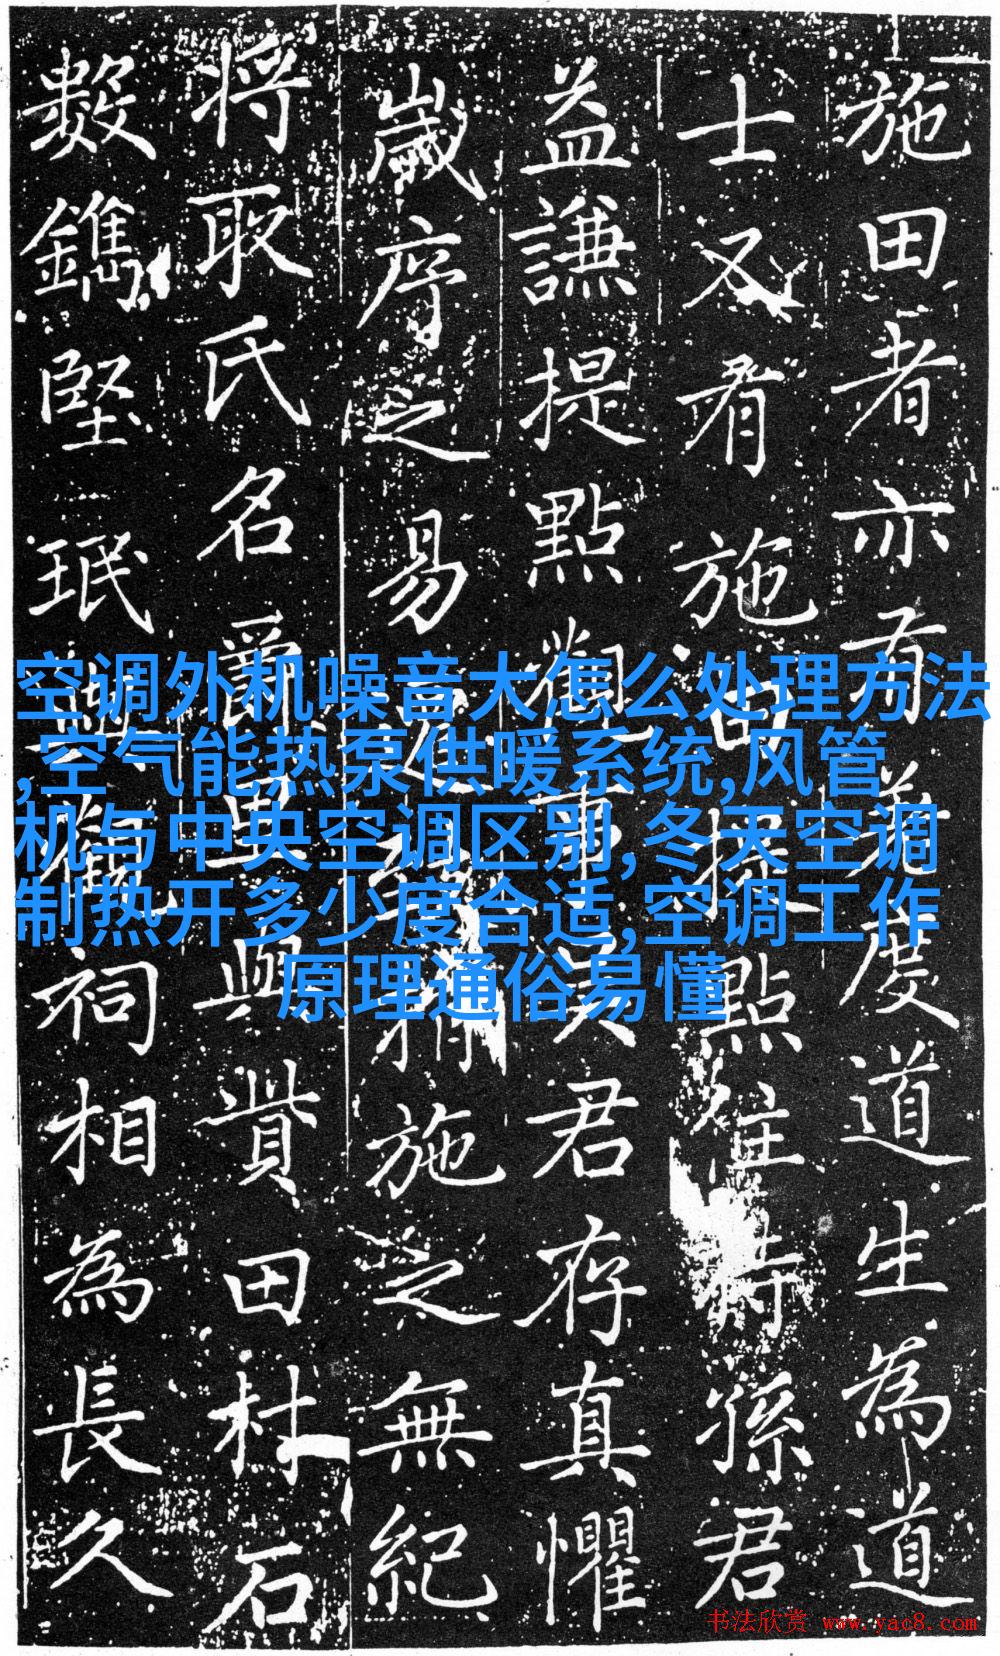 施田者亦有義度道生為道
士又有施田提點住持孫君
益謙提點事君存真懼
歲序之易施之無紀
将取氏名爵里與貲田石
數鐫堅珉與觀祠相為長久
空调外机噪音大怎么处理方法
,空气能热泵供暖系统,风管
机与中央空调区别,冬天空调
制热开多少度合适,空调工作
原理通俗易懂
书法欣赏 www.yac8.com